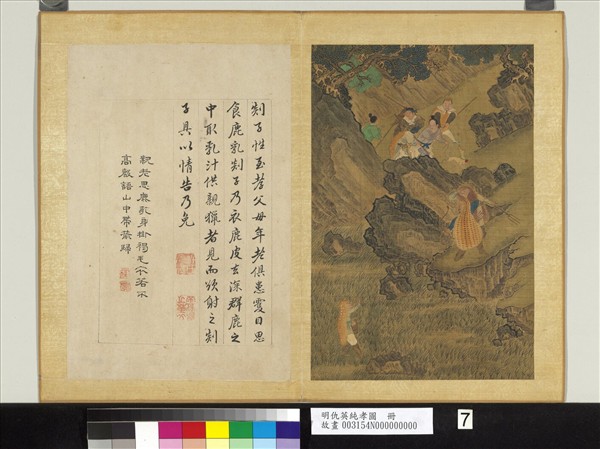 剡子性至孝父母年老俱患雙目思
食鹿乳剡子乃衣鹿皮去深群鹿之
中取乳汁供親獵者見而欲射之剡
子具以情告乃免
親老思鹿乳身掛褐毛衣若不
高聲語山中帶箭歸
明仇英純孝圖 冊
故畫 003154N000000000
7